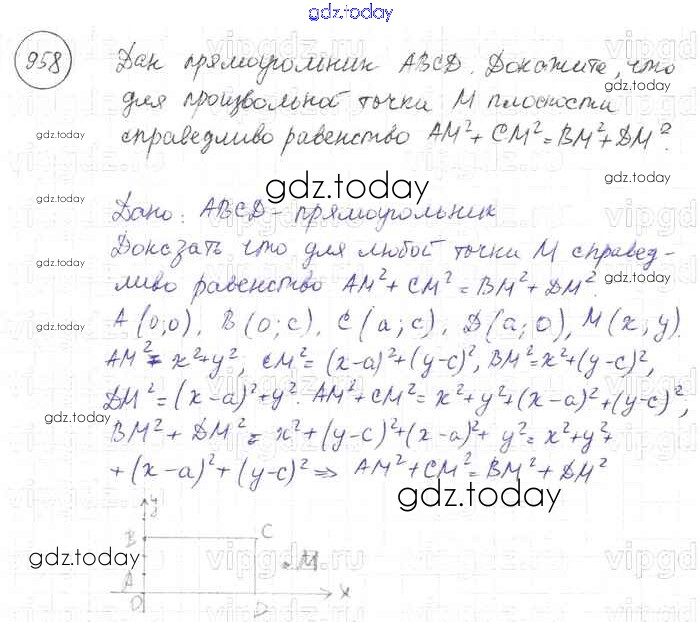 gdz.today
958
Дан прямоугольник ABCD. Докажите, что
для произвольной точки M плоскости
справедливо равенство AM²+CM²=BM²+DM².
gdz.today
gdz.today
gdz.today
gdz.today
Дано: ABCD-прямоугольник
Доказать что для любой точки M справед-
gdz.today
gdz.today
ливо равенство AM²+CM²=BM²+DM².
A(0;0), B(0;c), C(a;c), D(a;0), M(x;y).
gdz.today
gdz.today
AM²=x²+y², CM²=(x-a)²+(y-c)², BM²=x²+(y-c)²,
DM²=(x-a)²+y². AM²+CM²=x²+y²+(x-a)²+(y-c)²,
gdz.today
gdz.today
BM²+DM²=x²+(y-c)²+(x-a)²+y²=x²+y²+
+(x-a)²+(y-c)²⇒AM²+CM²=BM²+DM²
gdz.today
gdz.today
y
B C
gdz.today
M
A
O D x
vipgdz.ru